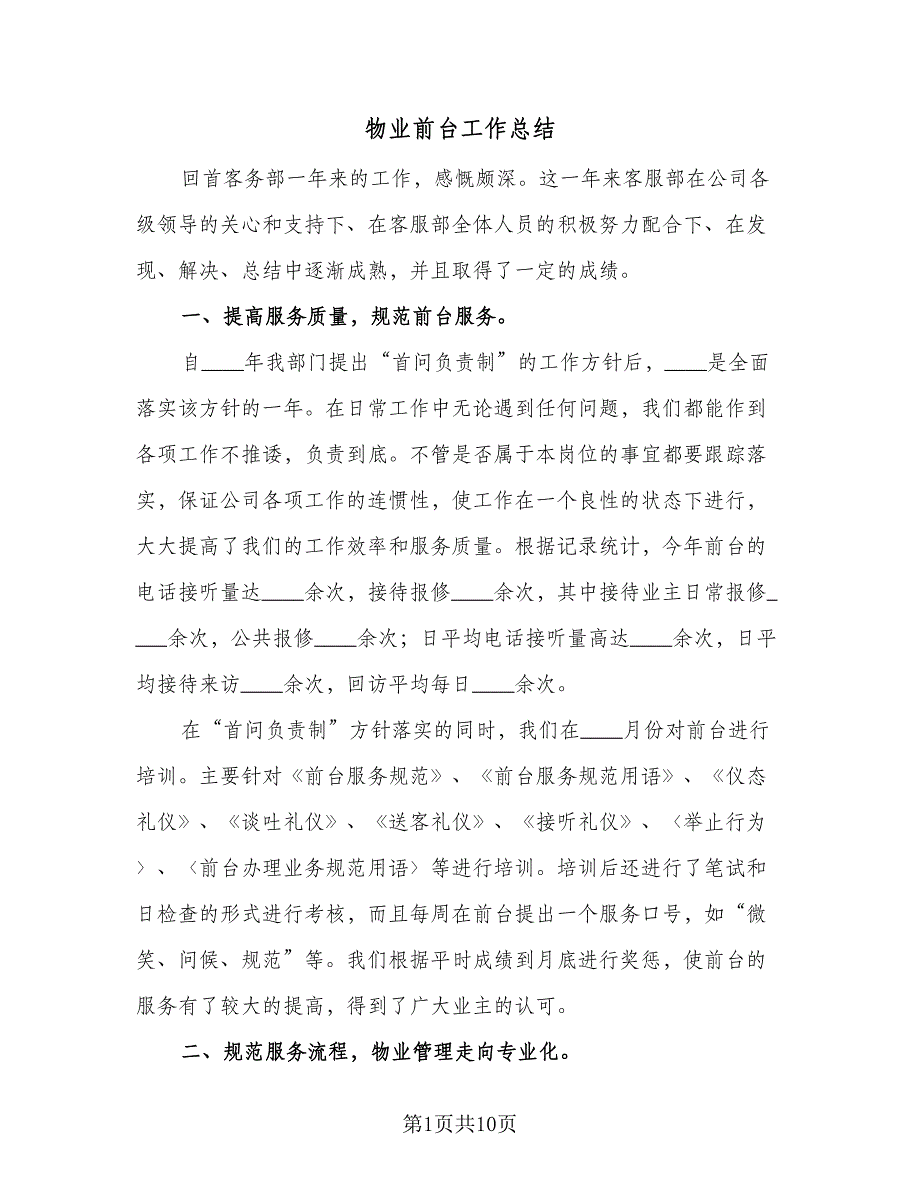 物业前台工作总结
回首客务部一年来的工作，感慨颇深。这一年来客服部在公司各
级领导的关心和支持下、在客服部全体人员的积极努力配合下、在发
现、解决、总结中逐渐成熟，并且取得了一定的成绩。
一、提高服务质量，规范前台服务。
自____年我部门提出“首问负责制”的工作方针后，____是全面
落实该方针的一年。在日常工作中无论遇到任何问题，我们都能作到
各项工作不推诿，负责到底。不管是否属于本岗位的事宜都要跟踪落
实，保证公司各项工作的连惯性，使工作在一个良性的状态下进行，
大大提高了我们的工作效率和服务质量。根据记录统计，今年前台的
电话接听量达____余次，接待报修____余次，其中接待业主日常报修_
___余次，公共报修____余次；日平均电话接听量高达____余次，日平
均接待来访____余次，回访平均每日____余次。
在“首问负责制”方针落实的同时，我们在____月份对前台进行
培训。主要针对《前台服务规范》、《前台服务规范用语》、《仪态
礼仪》、《谈吐礼仪》、《送客礼仪》、《接听礼仪》、〈举止行为
〉、〈前台办理业务规范用语〉等进行培训。培训后还进行了笔试和
日检查的形式进行考核，而且每周在前台提出一个服务口号，如“微
笑、问候、规范”等。我们根据平时成绩到月底进行奖惩，使前台的
服务有了较大的提高，得到了广大业主的认可。
二、规范服务流程，物业管理走向专业化。
第1页共10页